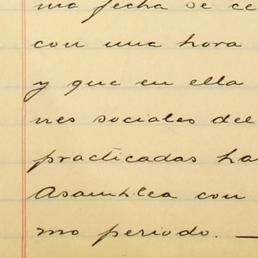 ma fecha de ce
con una hora
y que en ella
nes sociales del
practicadas ha
Asamblea con
mo periodo. —